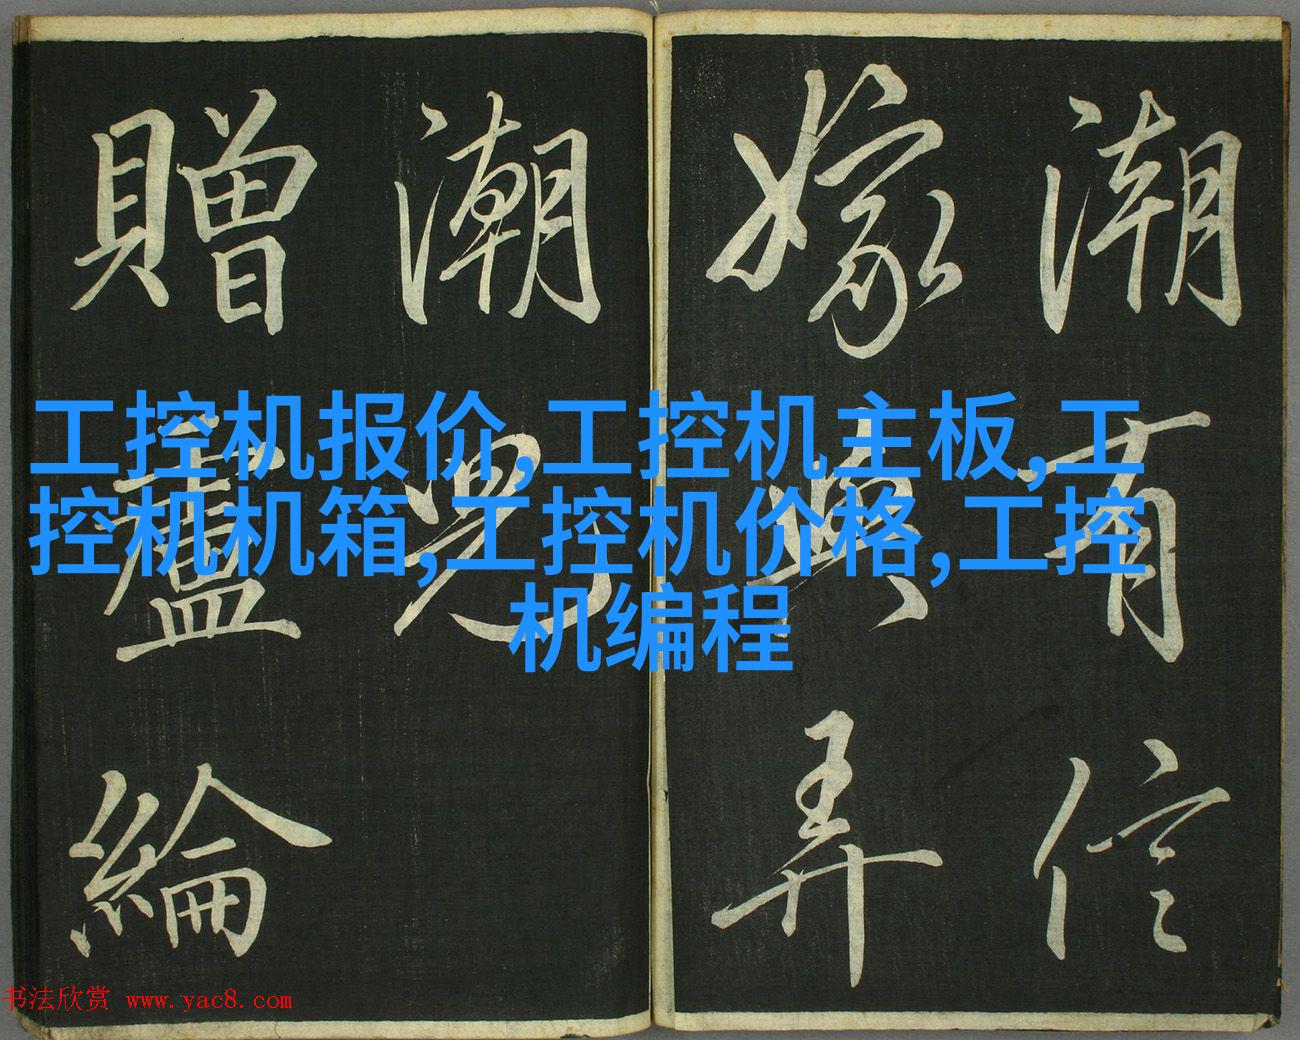 潮有信
嫁與弄
潮兒
贈薑綸
工控机报价,工控机主板,工
控机机箱,工控机价格,工控
机编程
书法欣赏 www.yac8.com